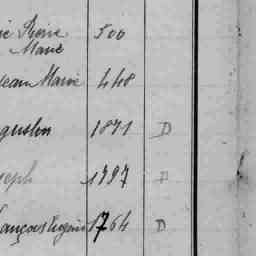 ie Pierre 500
Marie
Jean Marie 448
gustin 1871 D
seph 1797 D
rançois Eugène 1764 D